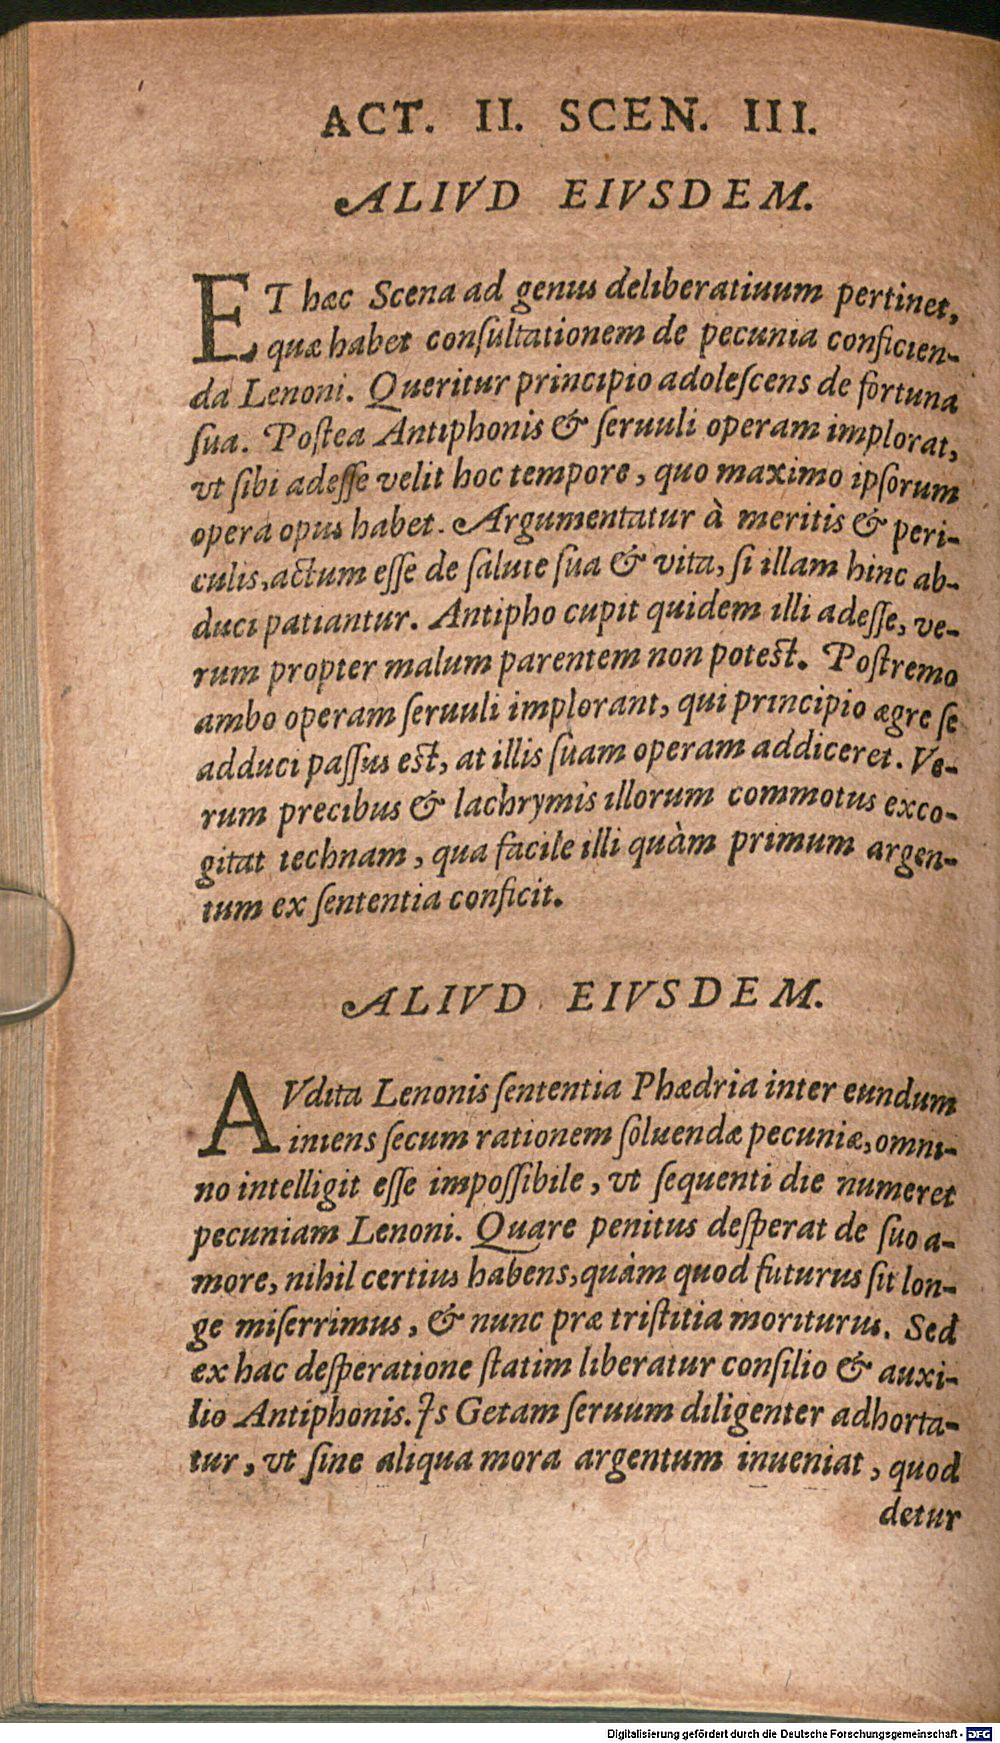 ACT. II. SCEN. III.
ALIVD EIVSDEM.
ET hæc Scena ad genus deliberatiuum pertinet,
quæ habet conſultationem de pecunia conficien-
da Lenoni. Queritur principio adoleſcens de fortuna
ſua. Poſtea Antiphonis & ſeruuli operam implorat,
vt ſibi adeſſe velit hoc tempore, quo maximo ipſorum
opera opus habet. Argumentatur à meritis & peri-
culis, actum eſſe de ſalute ſua & vita, ſi illam hinc ab-
duci patiantur. Antipho cupit quidem illi adeſſe, ve-
rum propter malum parentem non potest. Poſtremo
ambo operam ſeruuli implorant, qui principio ægre ſe
adduci paſſus est, at illis ſuam operam addiceret. Ve-
rum precibus & lachrymis illorum commotus exco-
gitat technam, qua facile illi quàm primum argen-
tum ex ſententia conficit.
ALIVD EIVSDEM.
AVdita Lenonis ſententia Phædria inter eundum
iniens ſecum rationem ſoluendæ pecuniæ, omni-
no intelligit eſſe impoſſibile, vt ſequenti die numeret
pecuniam Lenoni. Quare penitus deſperat de ſuo a-
more, nihil certius habens, quàm quod futurus ſit lon-
ge miſerrimus, & nunc præ triſtitia moriturus. Sed
ex hac deſperatione ſtatim liberatur conſilio & auxi-
lio Antiphonis. Is Getam ſeruum diligenter adhorta-
tur, vt ſine aliqua mora argentum inueniat, quod
detur
Digitalisierung gefördert durch die Deutsche Forschungsgemeinschaft - DFG